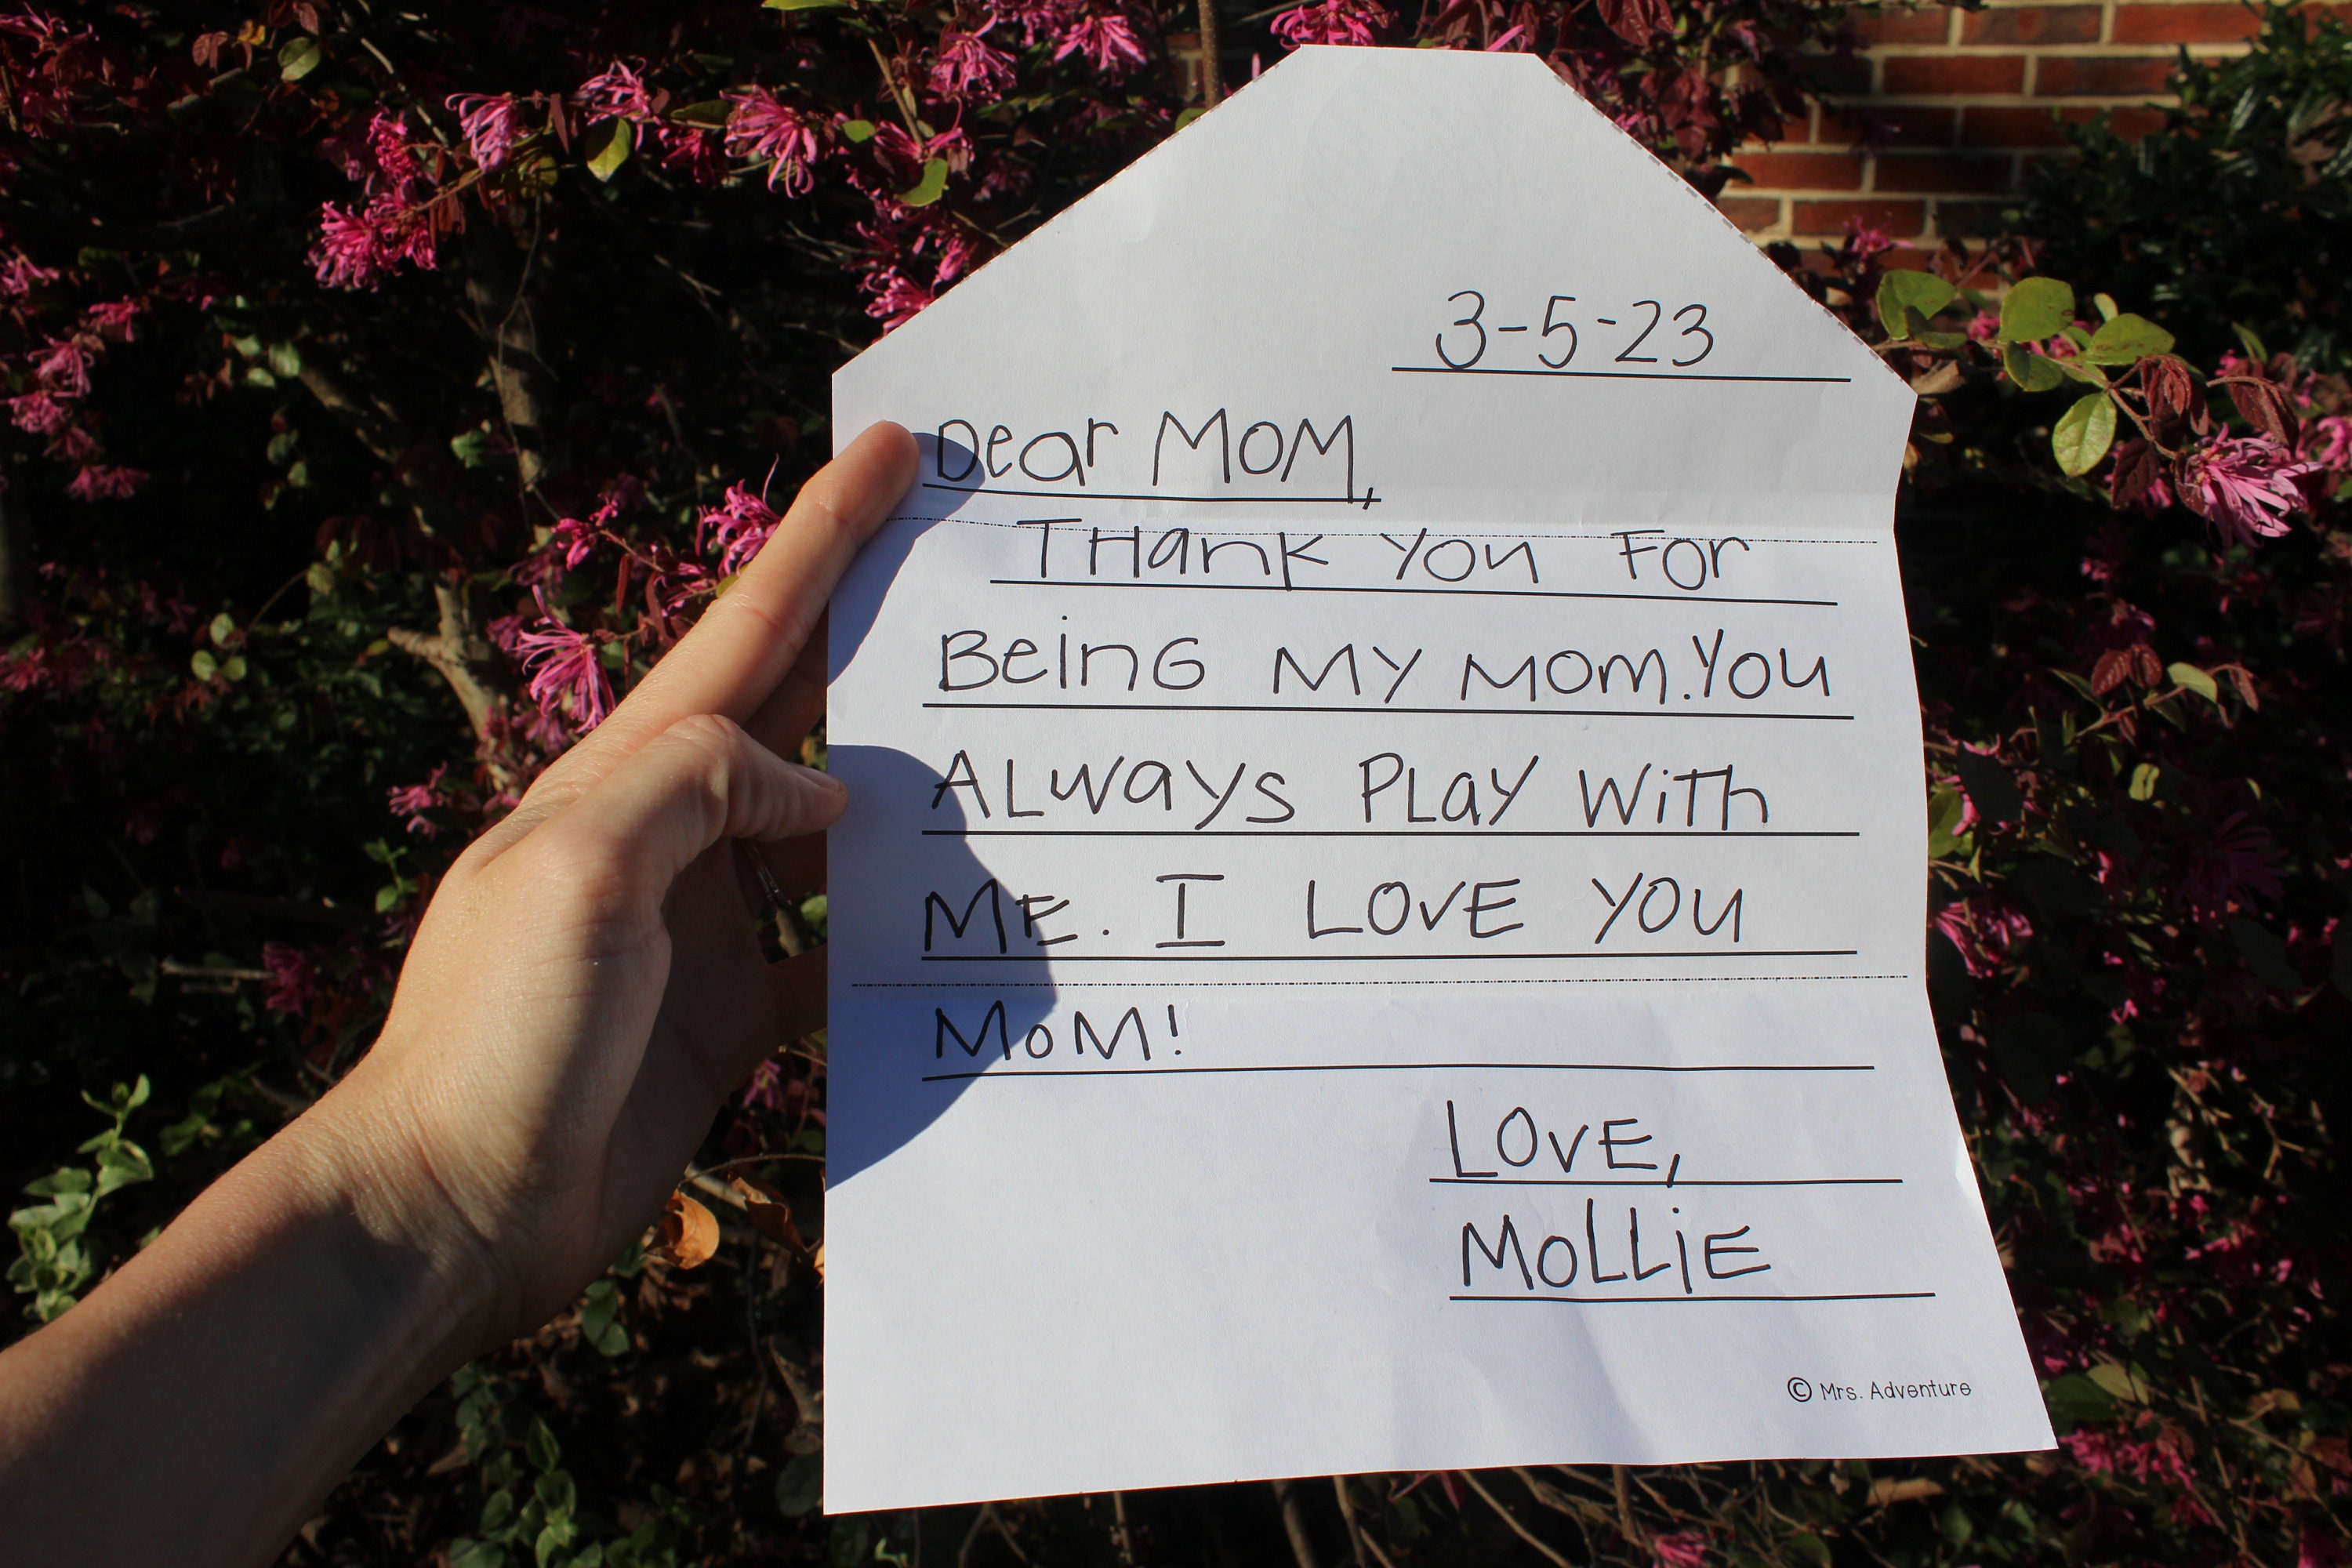 3-5-23
Dear MOM,
THank You For
BeinG MY MOM. You
ALWays PLay WiTh
ME. I LOVE YOU
MoM!
LOVE,
MOLLiE
© Mrs. Adventure